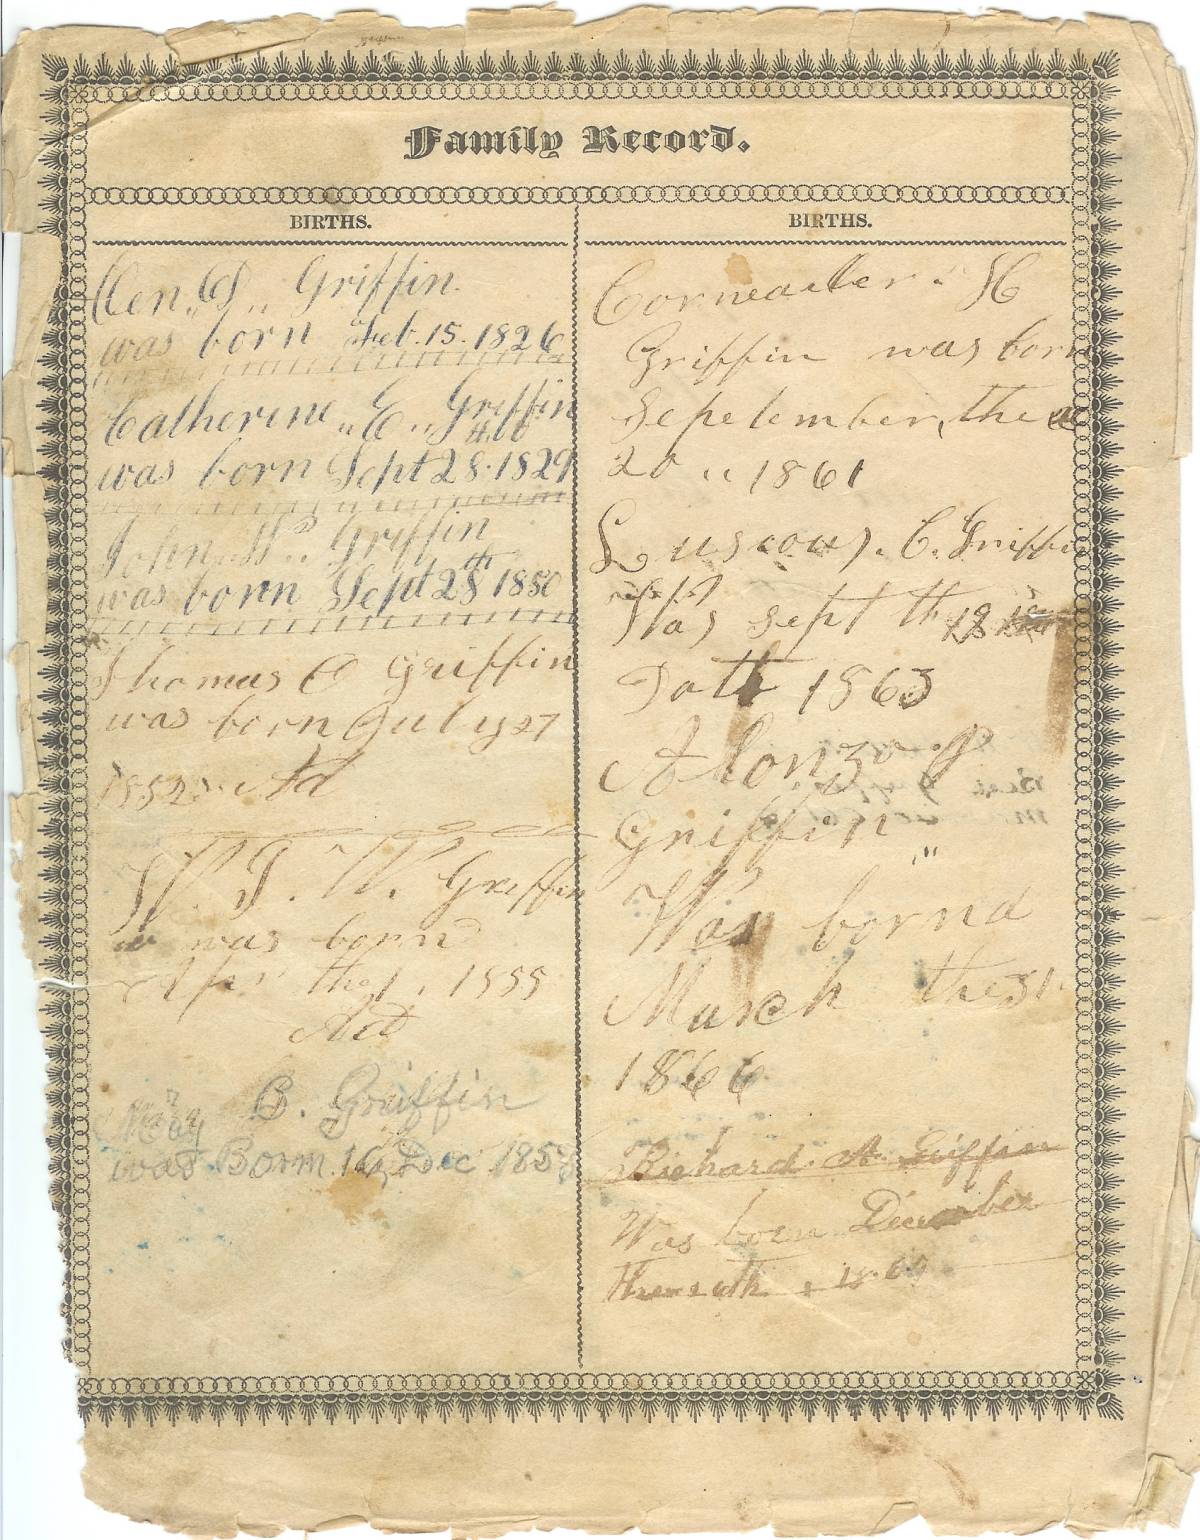 Family Record.
BIRTHS.
Griffin.
was born Feb. 15. 1826
Catherine „E„ Griffin
was born Sept 28th 1829
John „W„ Griffin
was born Sept 28th 1850
Thomas C Griffin
was born July 27
1852 Ad
W. T. W. Griffin
was born
Apr the 1, 1855
Ad
May B. Griffin
was Born 16 Dec 185
BIRTHS.
H
Griffin was born
Sepetember, the
20 „ 1861
C. Griffin
Was sept th 18
1863
Alonzo P
Griffin
Was bornd
March the 31
1866
Richard A Griffin
Was born December
the 18